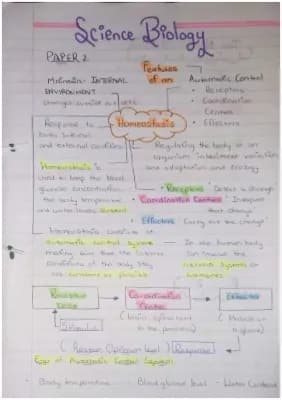 Science Biology
PAPER 2
Features
of an
Automatic Control
Maintain INTERNAL
ENVIRONMENT
• Receptors
• Coordination
Centres
• Effectors
Response to
both internal
and external conditions
Homeostasis
Regulating the body of an
organism
Homeostasis is
used to keep the blood
glucose concentration
the body temperature
and water levels constant
• Receptors Detect a change
• Coordination Centres Interpret
that change
• Effectors Carry out the change
Homeostasis consists of
automatic control systems
making sure that the internal
conditions of the body stay
as constant as possible
In the human body
can involve the
nervous system or
hormones
Receptor
Cells
Co-ordination
Centre
Effector
Stimulus
(brain, spinal cord
in the pancreas)
(Muscle or
a gland)
Response
Eg's of Automatic Control Systems
- Body temperature - Blood glucose level - Water Content